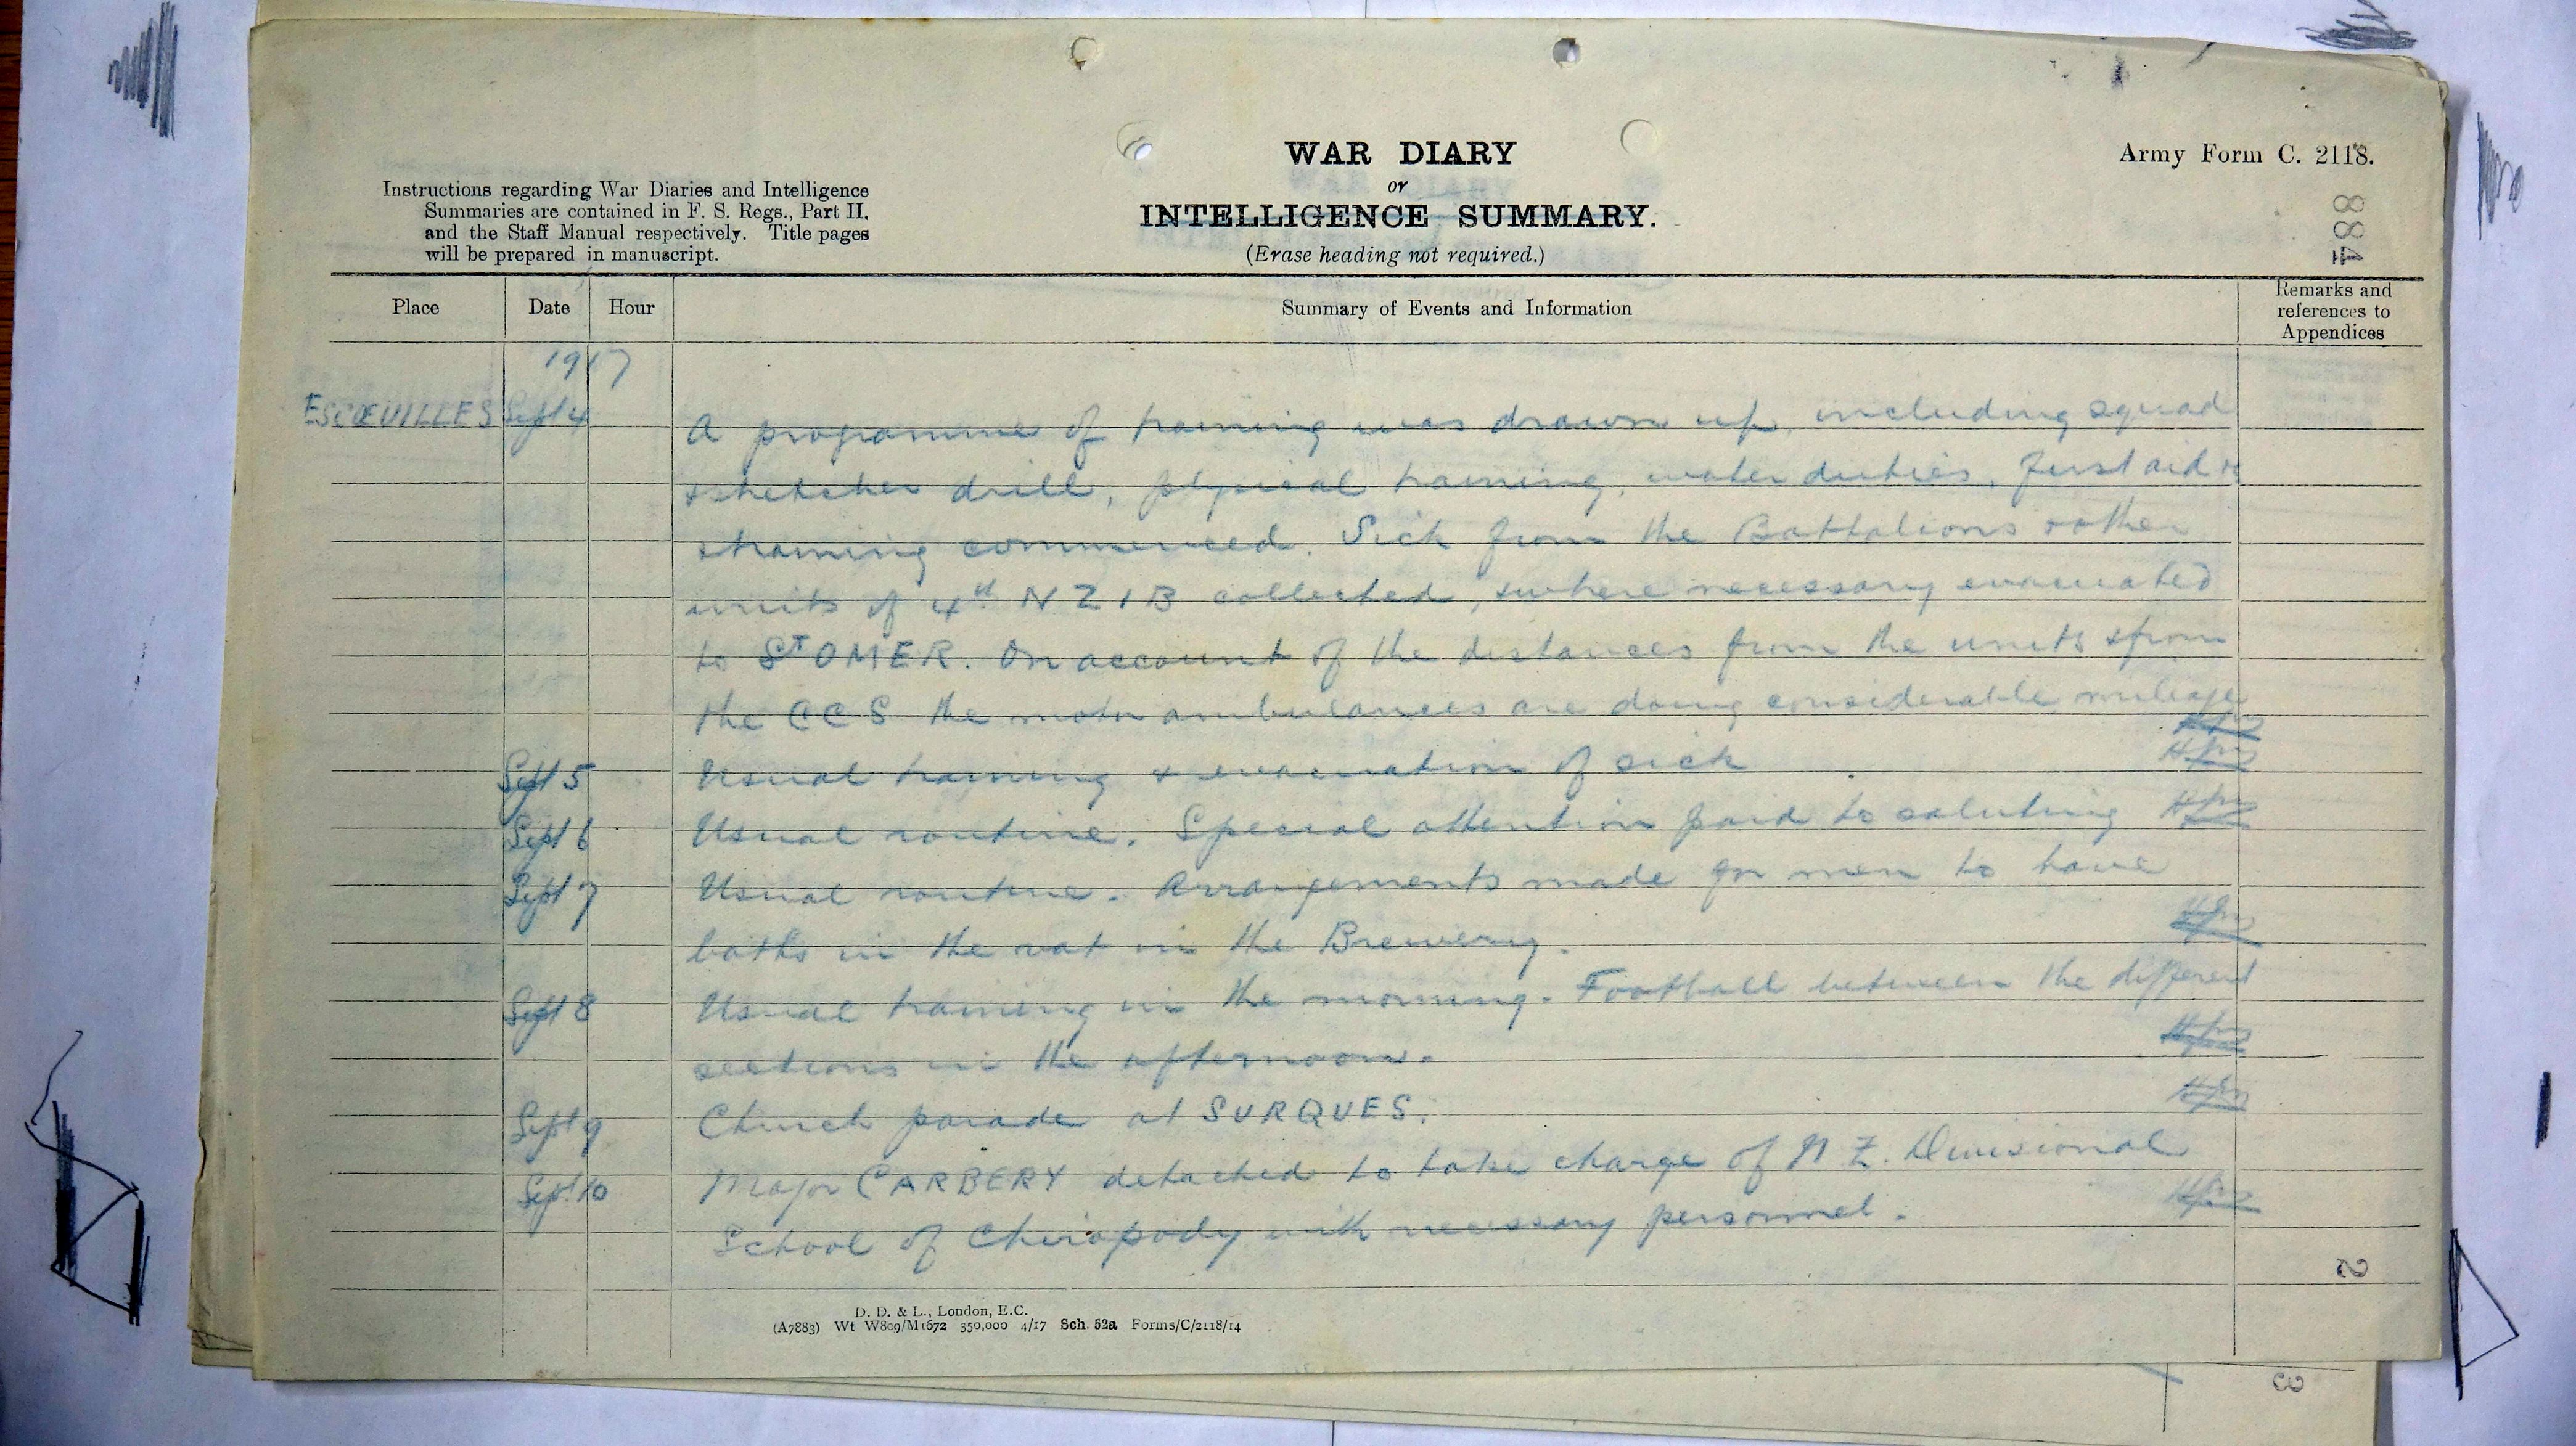 WAR DIARY
or
INTELLIGENCE SUMMARY.
(Erase heading not required.)
Army Form C. 2118.
884
Instructions regarding War Diaries and Intelligence
Summaries are contained in F. S. Regs., Part II.
and the Staff Manual respectively. Title pages
will be prepared in manuscript.
Place Date Hour Summary of Events and Information Remarks and
references to
Appendices
1917
ESCŒUILLES Sept 4 A programme of training was drawn up including squad
& stretcher drill, physical training, water duties, first aid &
training commenced. Sick from the Battalions & other
units of 4th NZIB collected, & where necessary evacuated
to ST OMER. On account of the distances from the units & from
the CCS the motor ambulances are doing considerable mileage
Sept 5 Usual training & evacuation of sick
Sept 6 Usual routine. Special attention paid to saluting
Sept 7 Usual routine. Arrangements made for men to have
baths in the vat in the Brewery.
Sept 8 Usual training in the morning. Football between the different
sections in the afternoon.
Sept 9 Church parade at SURQUES.
Sept 10 Major CARBERY detached to take charge of N Z. Divisional
School of Chiropody with necessary personnel.
2
D. D. & L., London, E.C.
(A7883) Wt W809/M1672 350,000 4/17 Sch. 52a Forms/C/2118/14
3